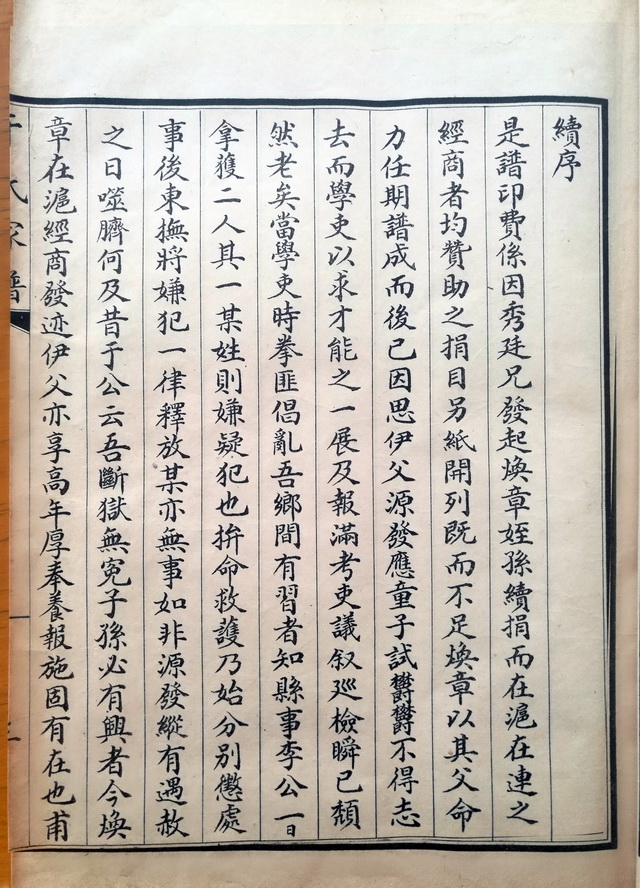 續序
是譜印費係因秀廷兄發起煥章姪孫續捐而在滬在連之
經商者均贊助之捐目另紙開列既而不足煥章以其父命
力任期譜成而後已因思伊父源發應童子試欝欝不得志
去而學吏以求才能之一展及報滿考吏議叙巡檢瞬已頹
然老矣當學吏時拳匪倡亂吾鄉間有習者知縣事李公一日
拿獲二人其一某姓則嫌疑犯也拚命救護乃始分别懲處
事後東撫將嫌犯一律釋放某亦無事如非源發縱有遇赦
之日噬臍何及昔于公云吾斷獄無寃子孫必有興者今煥
章在滬經商發迹伊父亦享高年厚奉養報施固有在也甫
氏家譜